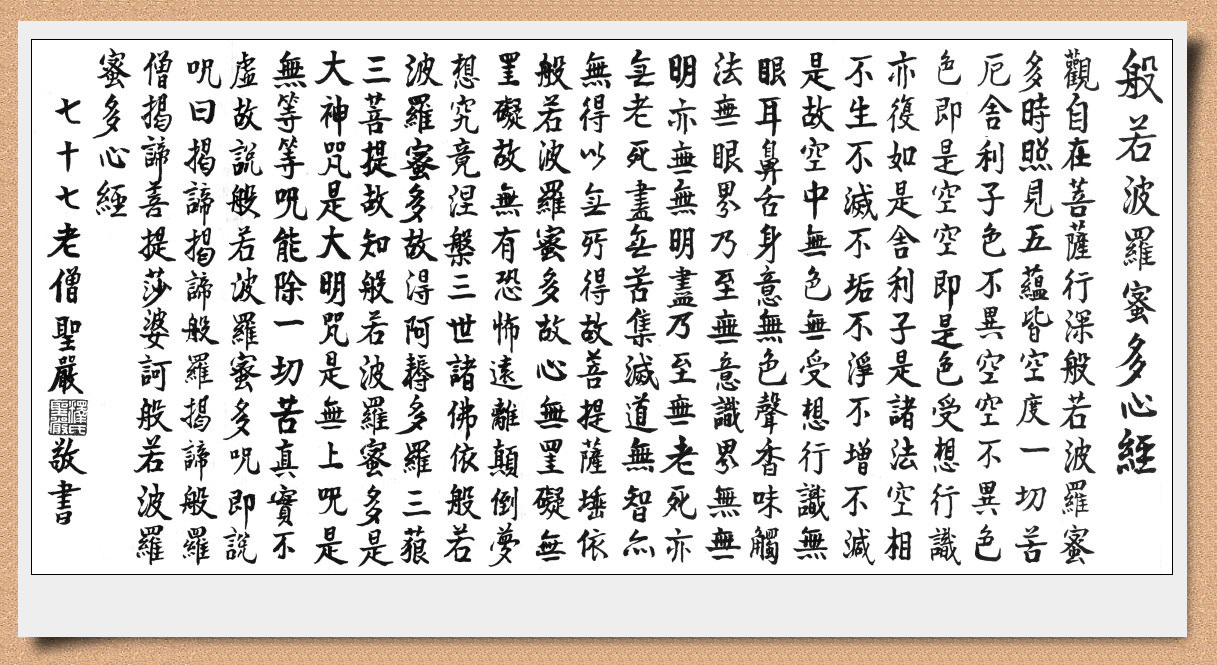 般若波羅蜜多心經
觀自在菩薩行深般若波羅蜜
多時照見五蘊皆空度一切苦
厄舍利子色不異空空不異色
色即是空空即是色受想行識
亦復如是舍利子是諸法空相
不生不滅不垢不淨不增不減
是故空中無色無受想行識無
眼耳鼻舌身意無色聲香味觸
法無眼界乃至無意識界無無
明亦無無明盡乃至無老死亦
無老死盡無苦集滅道無智亦
無得以無所得故菩提薩埵依
般若波羅蜜多故心無罣礙無
罣礙故無有恐怖遠離顛倒夢
想究竟涅槃三世諸佛依般若
波羅蜜多故得阿耨多羅三藐
三菩提故知般若波羅蜜多是
大神咒是大明咒是無上咒是
無等等咒能除一切苦真實不
虛故說般若波羅蜜多咒即說
咒曰揭諦揭諦般羅揭諦般羅
僧揭諦菩提莎婆訶般若波羅
蜜多心經
七十七老僧聖嚴敬書